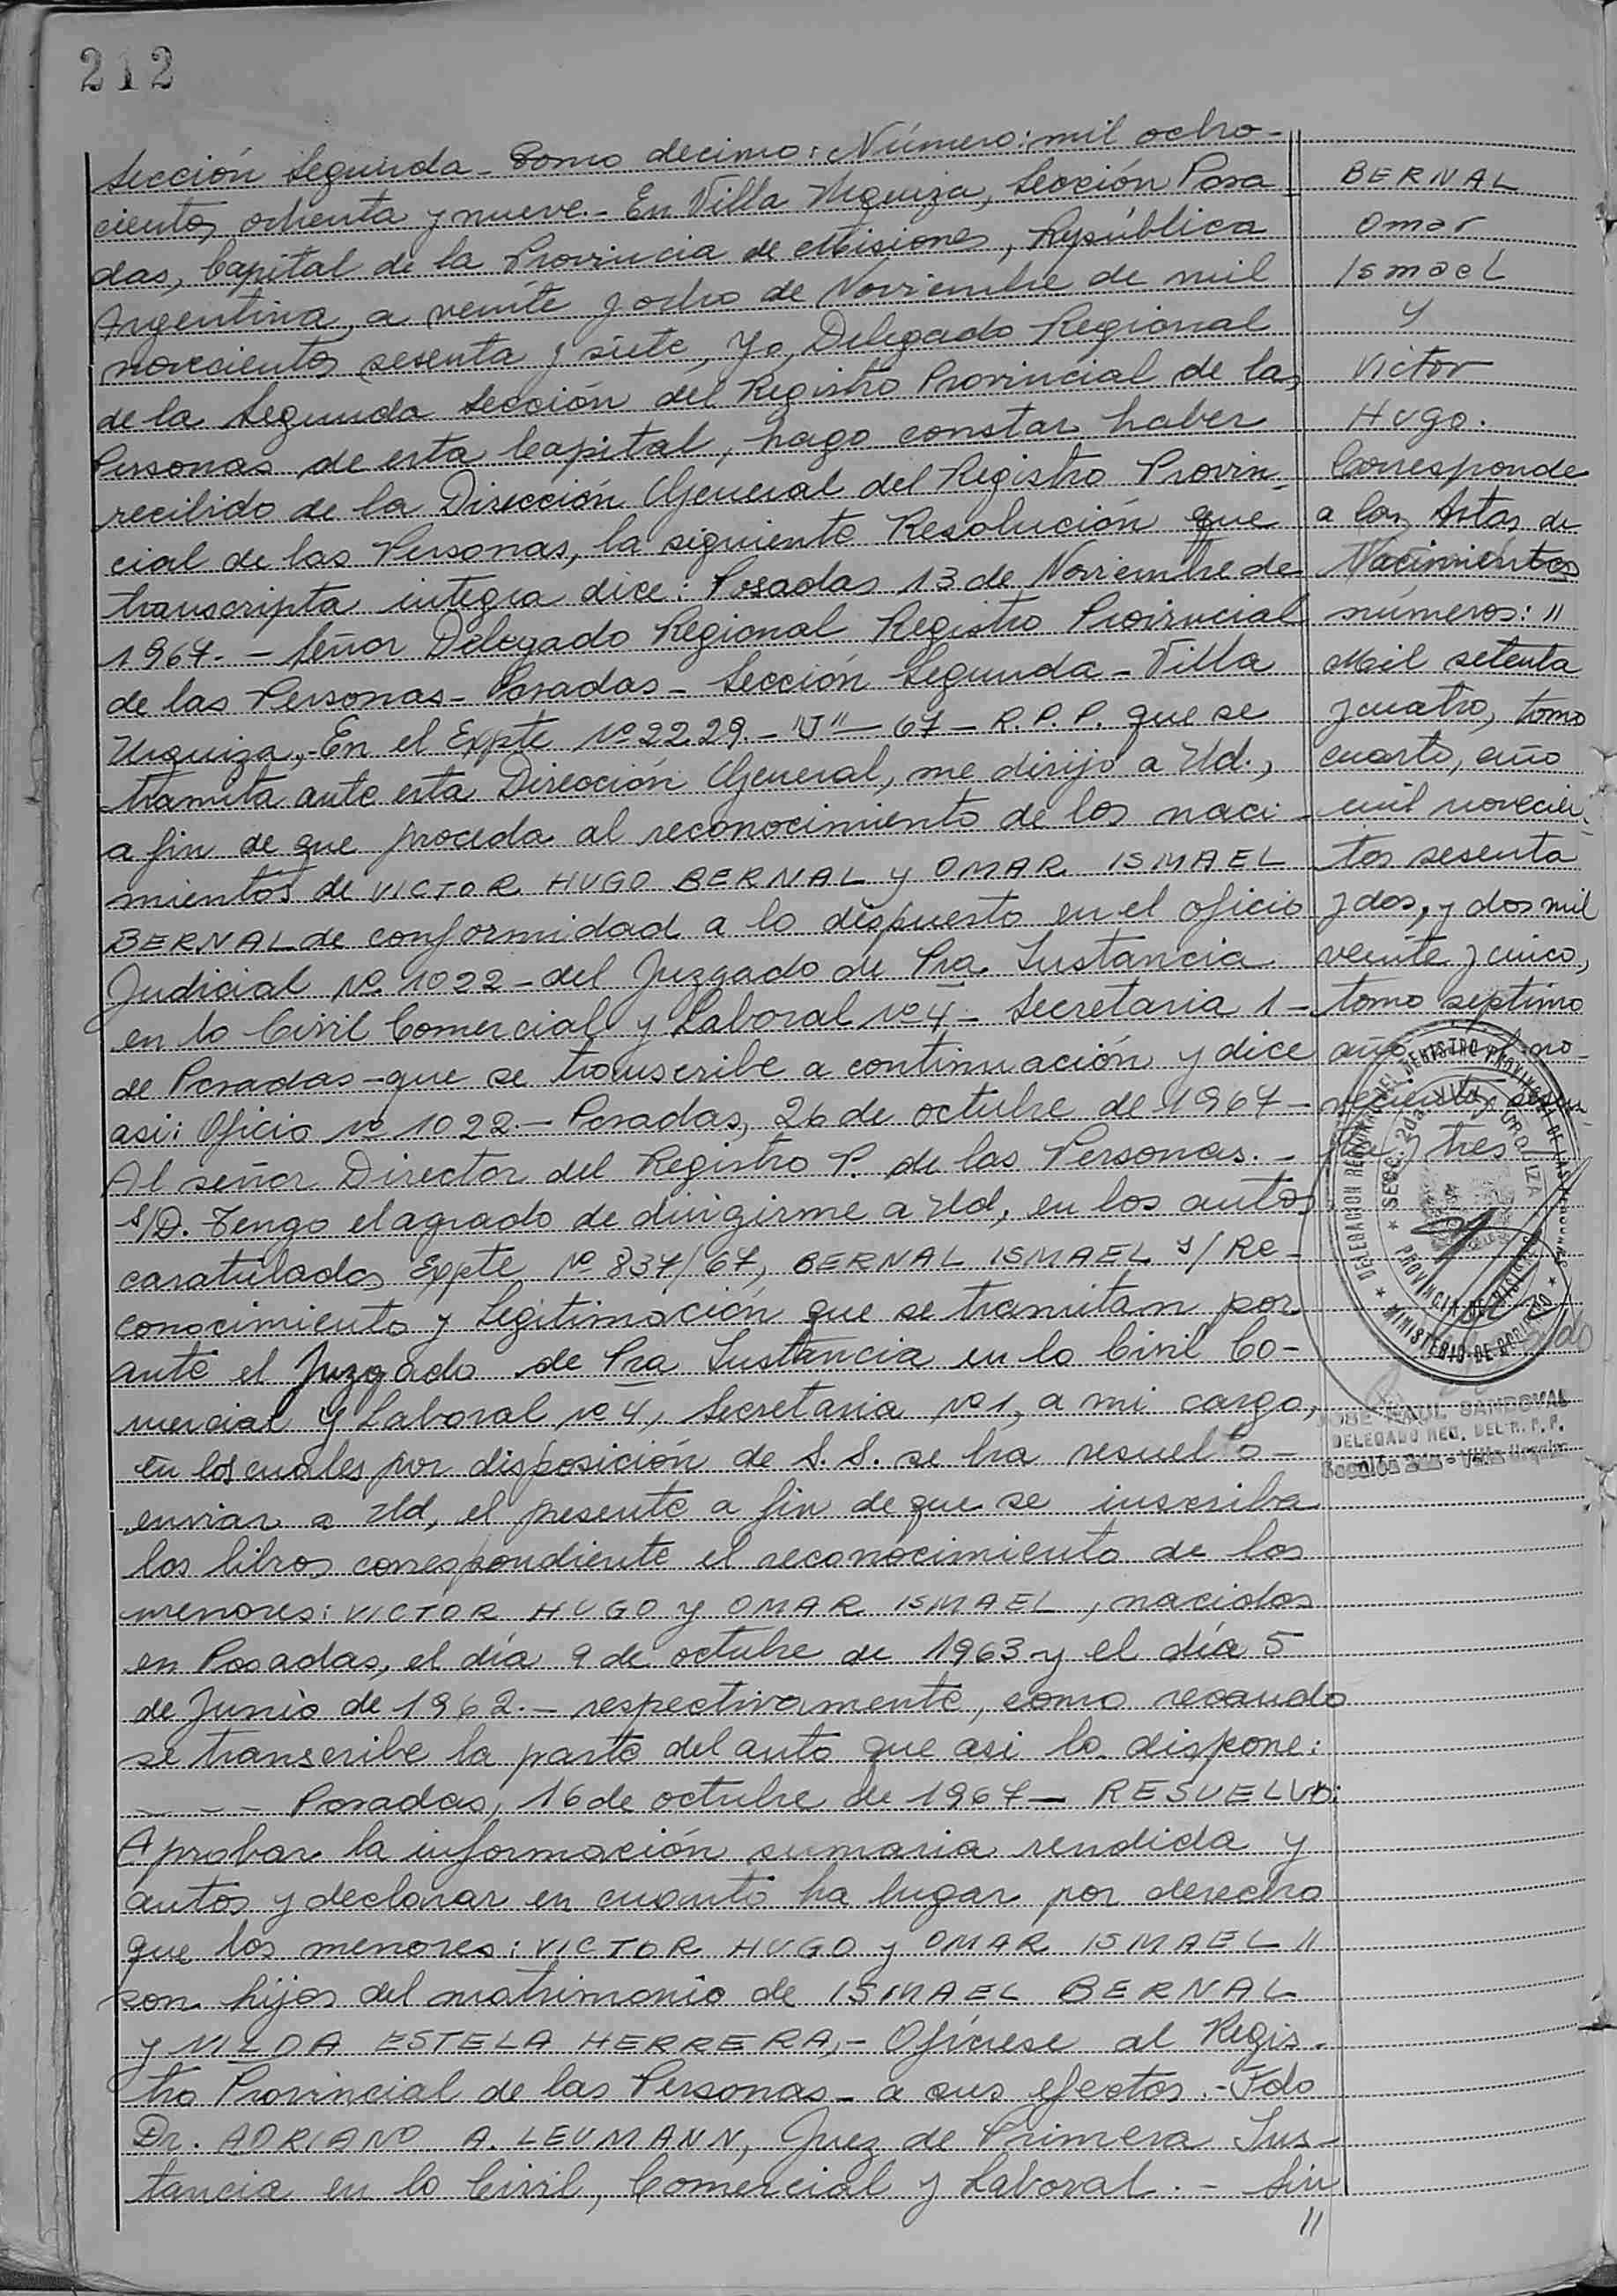 212
Sección Segunda - Tomo decimo: Número: mil ocho-
cientos ochenta y nueve.- En Villa Urquiza, Sección Posa
das, Capital de la Provincia de Misiones, República
Argentina, a veinte y ocho de Noviembre de mil
novecientos sesenta y siete, Yo, Delegado Regional
de la Segunda Sección del Registro Provincial de las
Personas de esta Capital, hago constar haber
recibido de la Dirección General del Registro Provin-
cial de las Personas, la siguiente Resolución que
transcripta integra dice: Posadas 13 de Noviembre de
1967.- Señor Delegado Regional Registro Provincial
de las Personas - Posadas - Sección Segunda - Villa
Urquiza,- En el Expte Nº 2229.- "J" - 67 - R.P.P. que se
tramita ante esta Dirección General, me dirijo a Ud.,
a fin de que proceda al reconocimiento de los naci-
mientos de VICTOR HUGO BERNAL y OMAR ISMAEL
BERNAL de conformidad a lo dispuesto en el oficio
Judicial Nº 1022 - del Juzgado de Pra Instancia
en lo Civil Comercial y Laboral nº 4 - Secretaria 1 -
de Posadas - que se transcribe a continuación y dice
asi: Oficio nº 1022.- Posadas, 26 de octubre de 1967 -
Al señor Director del Registro P. de las Personas.-
S/D. Tengo el agrado de dirigirme a Ud, en los autos
caratulados Expte Nº 837/67, BERNAL ISMAEL s/ Re-
conocimiento y Legitimación que se tramitan por
ante el Juzgado de Pra Instancia en lo Civil Co-
mercial y Laboral nº 4, Secretaria nº 1, a mi cargo,
en los cuales por disposición de S.S. se ha resuelto -
enviar a Ud, el presente a fin de que se inscriba
los libros correspondiente el reconocimiento de los
menores: VICTOR HUGO y OMAR ISMAEL, nacidos
en Posadas, el día 9 de octubre de 1963 y el día 5
de Junio de 1962.- respectivamente, como recaudo
se transcribe la parte del auto que asi lo dispone:
- - - Posadas, 16 de octubre de 1967 - RESUELVO:
Aprobar la información sumaria rendida y
autos y declarar en cuanto ha lugar por derecho
que los menores: VICTOR HUGO y OMAR ISMAEL //
son hijos del matrimonio de ISMAEL BERNAL
y NILDA ESTELA HERRERA,- Ofíciese al Regis-
tro Provincial de las Personas - a sus efectos.- Fdo
Dr. ADRIANO A. LEUMANN, Juez de Primera Ins-
tancia en lo Civil, Comercial y Laboral.- Sin
//
BERNAL
Omar
Ismael
y
Victor
Hugo.
Corresponde
a las Actas de
Nacimientos
números: //
Mil setenta
y cuatro, tomo
cuarto, año
mil novecien-
tos sesenta
y dos, y dos mil
veinte y cinco,
tomo septimo
año mil no-
vecientos sesen
ta y tres
DELEGACION REGIONAL DEL REGISTRO PROVINCIAL DE LAS PERSONAS
★ MINISTERIO DE GOBIERNO ★
SECC. 2da. VILLA URQUIZA
★ PROVINCIA DE MISIONES
JOSE RAUL SANDOVAL
DELEGADO REG. DEL R. P. P.
Sección 2da - Villa Urquiza